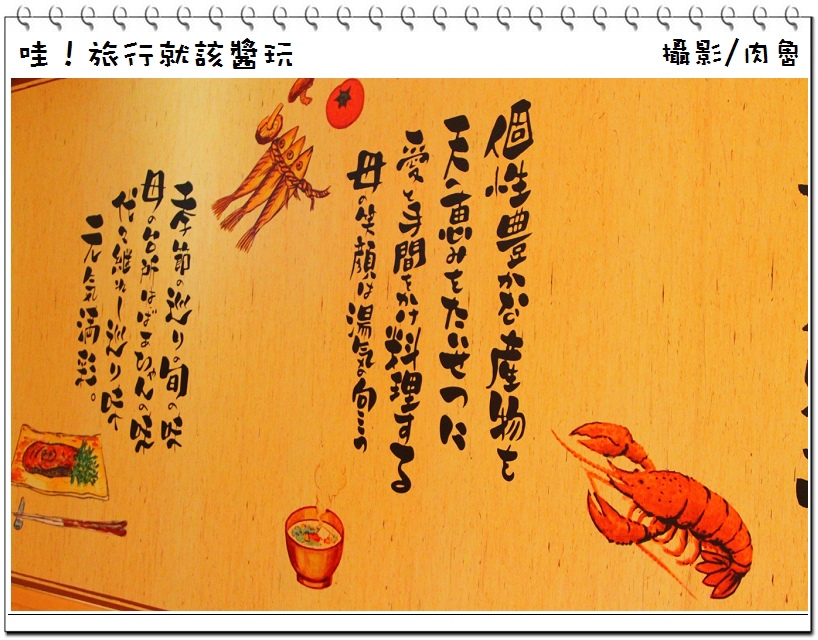 哇！旅行就該醬玩
攝影/肉魯
個性豊かな産物を
天の恵みをたいせつに
愛と手間をかけ料理する
母の笑顔は湯気の向こう
季節の巡りの旬の味
母の台所はばあちゃんの味
代々継れし巡り味
元気満彩。